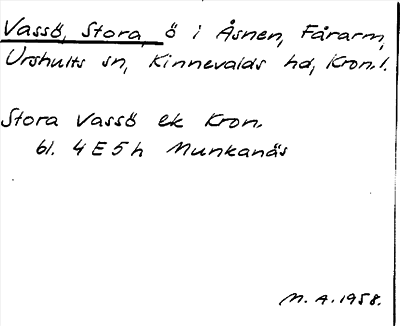 Vassö, Stora, ö i Åsnen, Fårarm,
Urshults sn, Kinnevalds hd, Kron.l.
Stora Vassö ek Kron.
bl. 4 E 5 h Munkanäs
M. A. 1958.